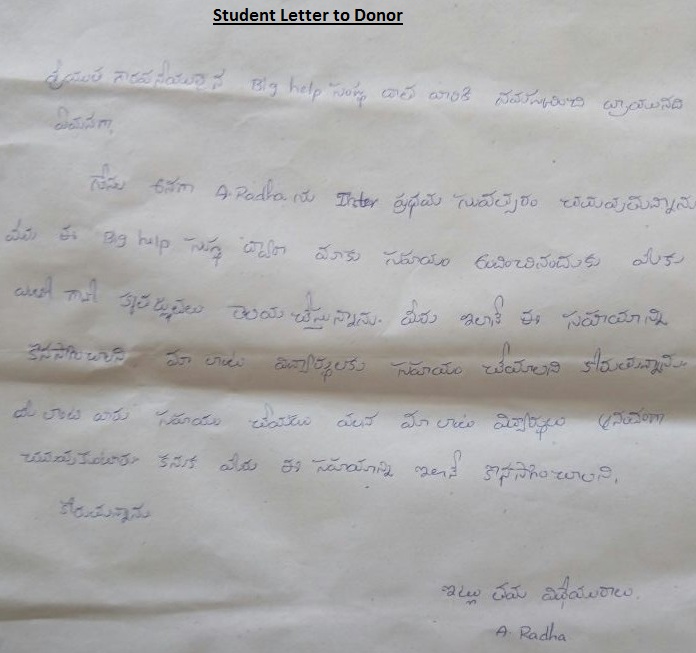 Student Letter to Donor
శ్రీయుత గౌరవనీయులైన Big help సంస్థ వారికి నమస్కరించి వ్రాయునది
ఏమనగా,
నేను అనగా A. Radha ను Inter ప్రథమ సంవత్సరం చదువుతున్నాను
మీరు ఈ Big help సంస్థ ద్వారా మాకు సహాయం అందించినందుకు మీకు
కృతజ్ఞతలు తెలియ చేస్తున్నాను. మీరు ఇలానే ఈ సహాయాన్ని
కొనసాగించాలని మా లాంటి విద్యార్థులకు సహాయం చేయాలని కోరుతున్నాను.
మీ లాంటి వారు సహాయం చేయడం వలన మా లాంటి విద్యార్థులు
చదువుకుంటారు కనుక మీరు ఈ సహాయాన్ని ఇలానే కొనసాగించాలని,
కోరుతున్నాను
ఇట్లు తమ విధేయురాలు.
A. Radha